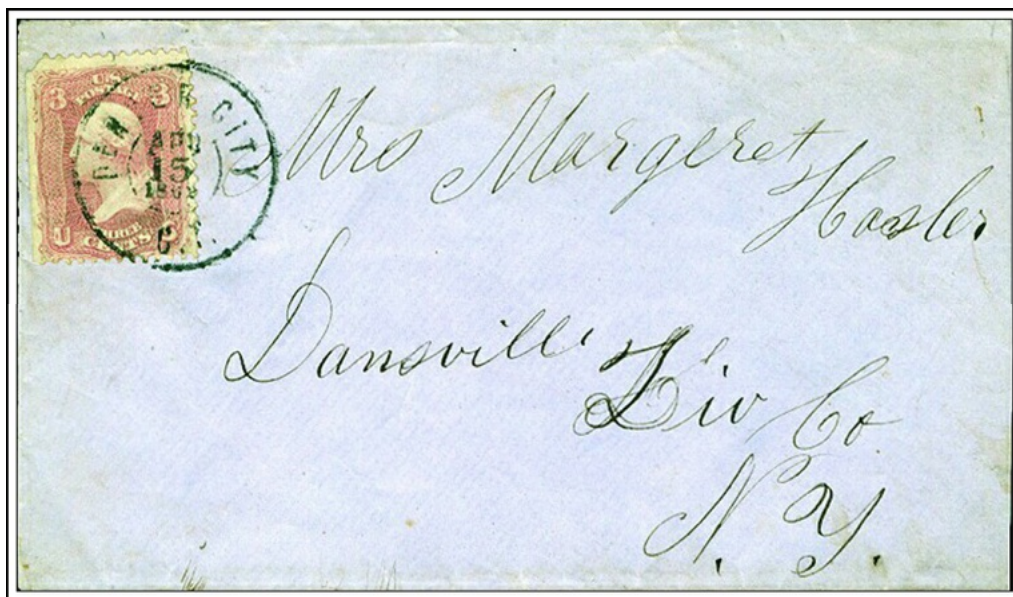 U.S.
POSTAGE
3 3
THREE
CENTS
U S
CITY
APR
15
C.T.
Mrs Margeret
Hosler
Dansville
Liv Co
N. Y.